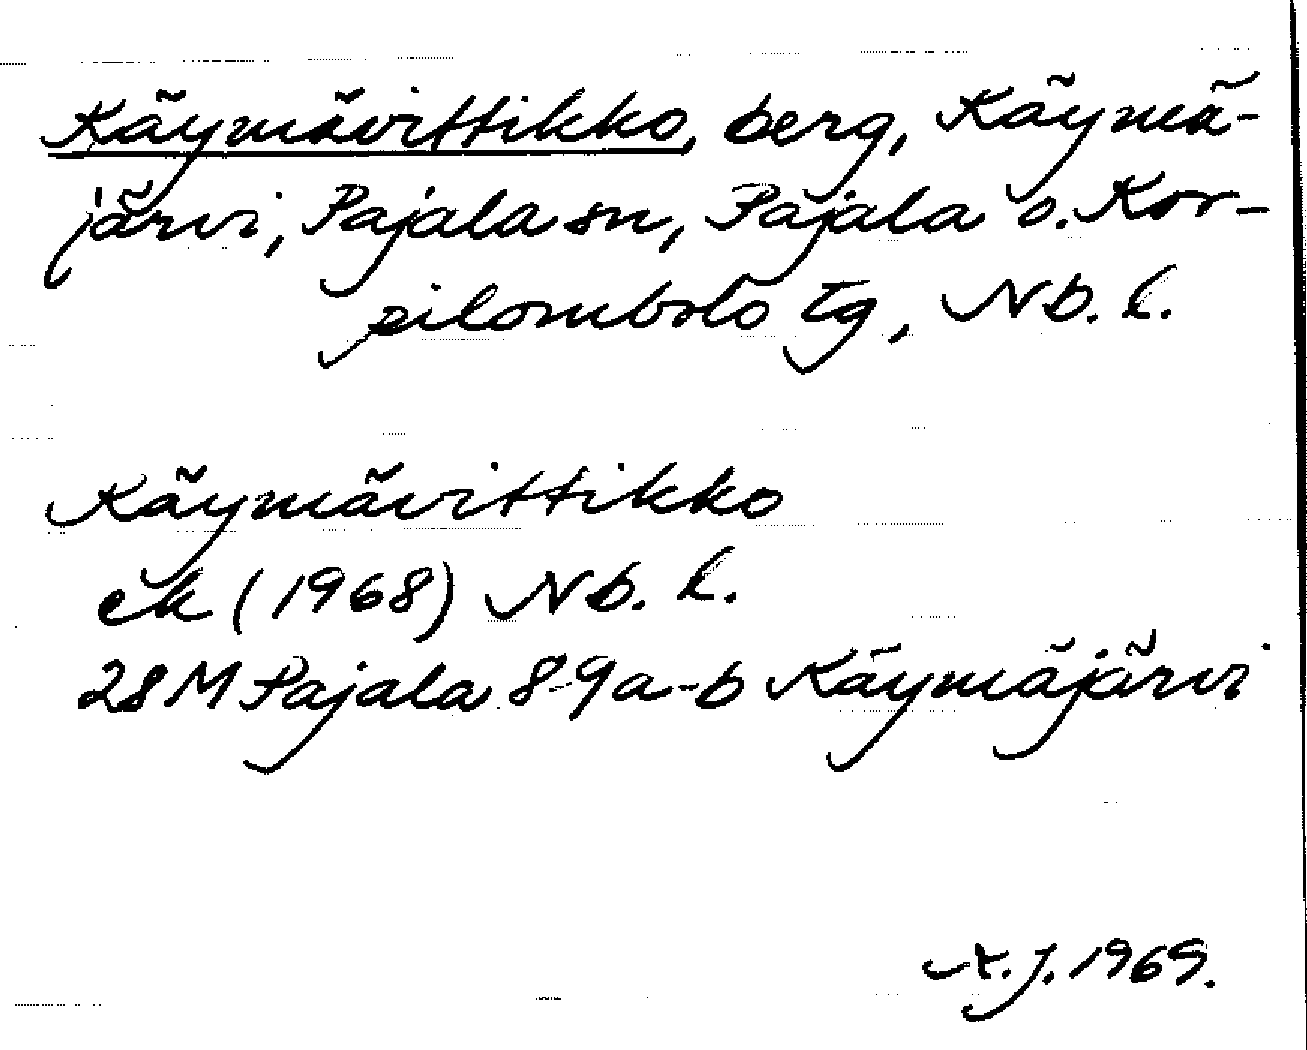 Käymävittikko, berg, Käymä-
järvi, Pajala sn, Pajala o. Kor-
pilombolo tg, Nb. l.
Käymävittikko
ek (1968) Nb. l.
28 M Pajala 8-9 a-b Käymäjärvi
A. J. 1969.